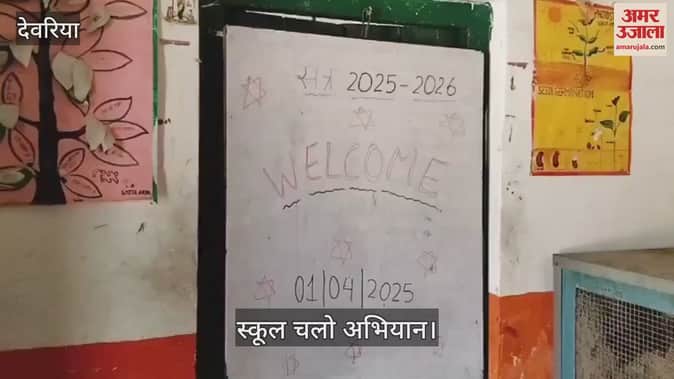 देवरिया
अमर
उजाला
amarujala.com
सत्र 2025-2026
WELCOME
01/04/2025
SEED GERMINATION
स्कूल चलो अभियान।